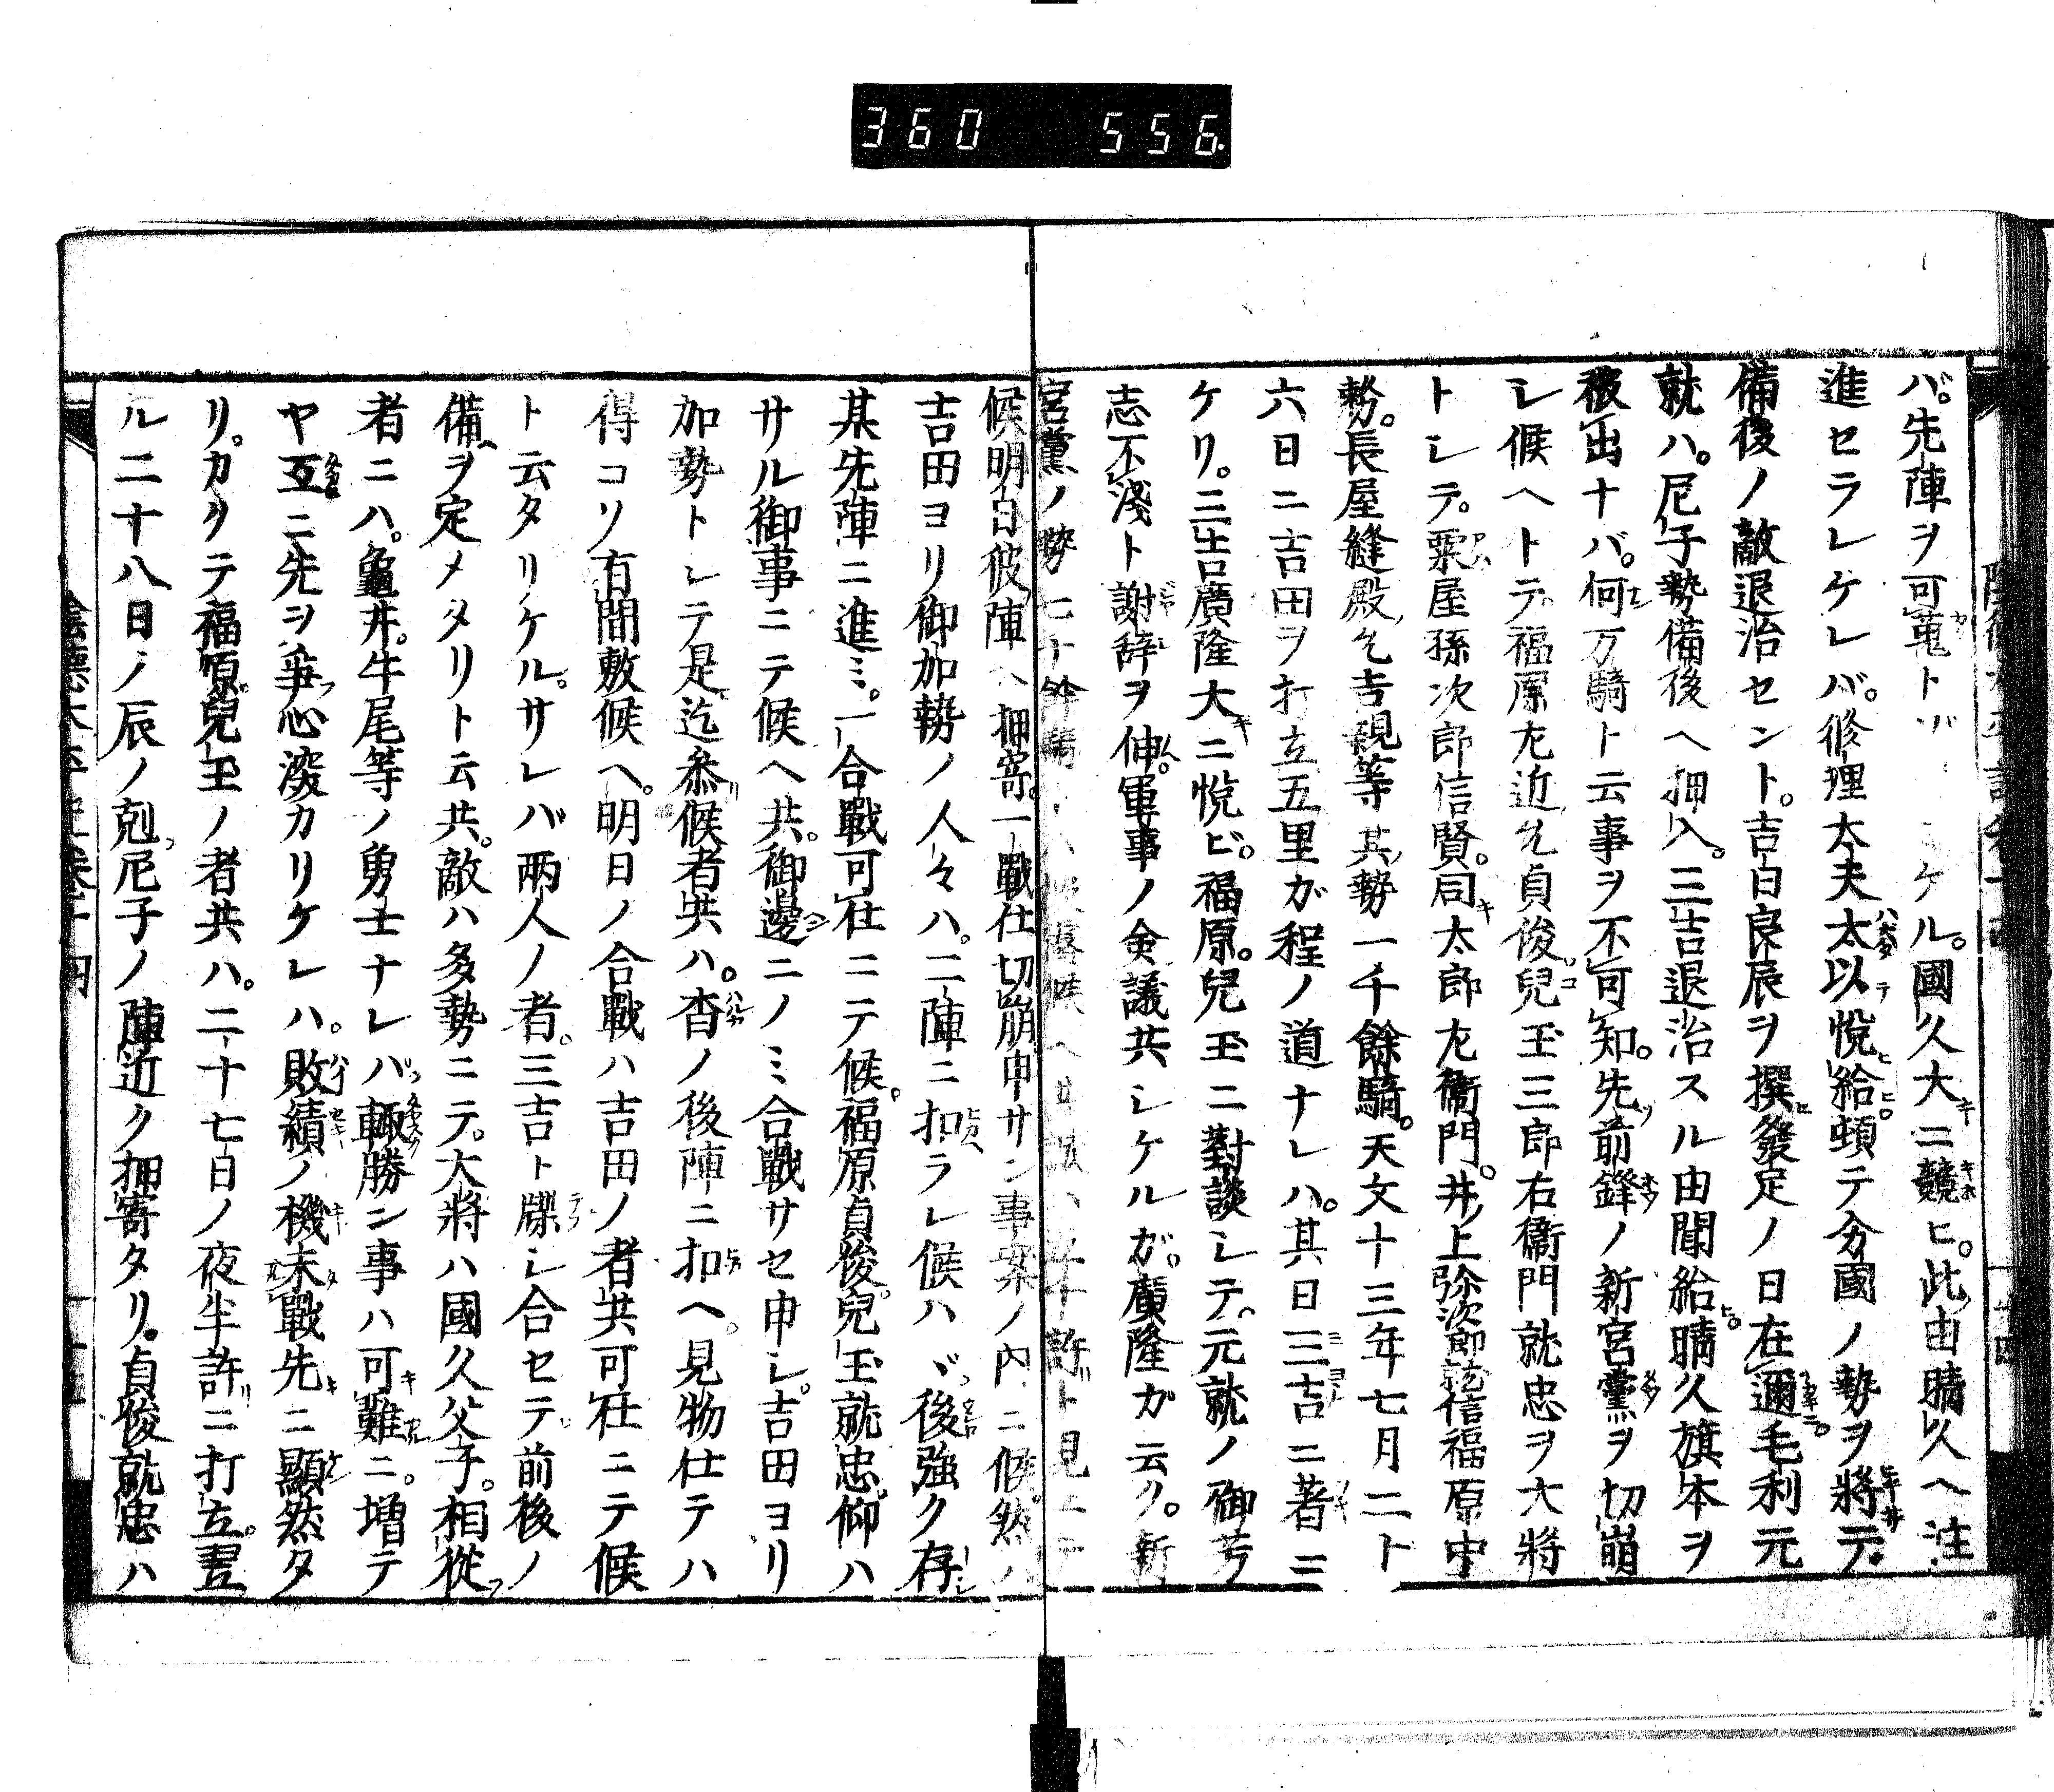 360 556
バ。先陣ヲ可蒐トゾ ケル。國久大ニ競ヒ。此由晴久ヘ注
進セラレケレバ。修理太夫太以悦給ヒ。頓テ分國ノ勢ヲ將テ。
備後ノ敵退治セント。吉日良辰ヲ撰發足ノ日在邇毛利元
就ハ。尼子勢備後ヘ押入。三吉退治スル由聞給ヒ。晴久旗本ヲ
被出ナバ。何万騎ト云事ヲ不可知。先前鋒ノ新宮黨ヲ切崩
シ候ヘトテ。福原左近允貞俊兒玉三郎右衞門就忠ヲ大將
トシテ。粟屋孫次郎信賢。同太郎左衞門。井ノ上弥次郎 信福原中
務。長屋縫殿允吉親等其勢一千餘騎。天文十三年七月二十
六日ニ吉田ヲ打立五里ガ程ノ道ナレハ。其日三吉ニ著ニ
ケリ。三吉廣隆大ニ悅ビ。福原。兒玉ニ對談シテ。元就ノ御芳
志不淺ト謝辞ヲ伸。軍事ノ僉議共シケルガ。廣隆カ云ク。新
宮黨ノ勢 千餘騎 ト見エテ
候明日彼陣ヘ押寄。一戰仕切崩申サン事案ノ内ニ候。然ハ
吉田ヨリ御加勢ノ人々ハ。二陣ニ扣ラレ候ハヾ後強ク存
某先陣ニ進ミ。一合戰可仕ニテ候。福原貞俊。兒玉就忠。仰ハ
サル御事ニテ候ヘ共。御邊ニノミ合戰サセ申シ。吉田ヨリ
加勢トレテ是迄叅候者共ハ。杳ノ後陣ニ扣ヘ。見物仕テハ
得コソ有間敷候ヘ。明日ノ合戰ハ吉田ノ者共可仕ニテ候
ト云タリケル。サレバ兩人ノ者。三吉ト牒シ合セテ前後ノ
備ヲ定メタリト云共。敵ハ多勢ニテ。大將ハ國久父子。相從
者ニハ。龜井。牛尾等ノ勇士ナレバ輙勝ン事ハ可難ニ。増テ
ヤ互ニ先ヲ爭心深カリケレハ。敗績ノ機未戰先ニ顯然タ
リ。カクテ福原兒玉ノ者共ハ。二十七日ノ夜半許ニ打立。翌
ル二十八日ノ辰ノ剋尼子ノ陣近ク押寄タリ。貞俊就忠ハ